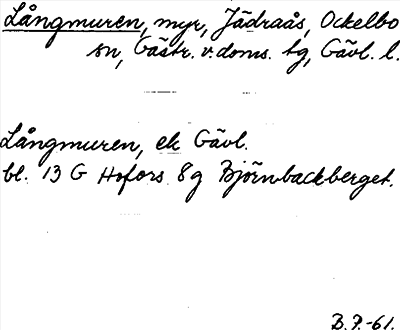 Långmuren, myr, Jädraås, Ockelbo
sn, Gästr. v. doms. tg, Gävl. l.
Långmuren, ek Gävl.
bl. 13 G Hofors 8g Björnbackberget.
B.P.-61.